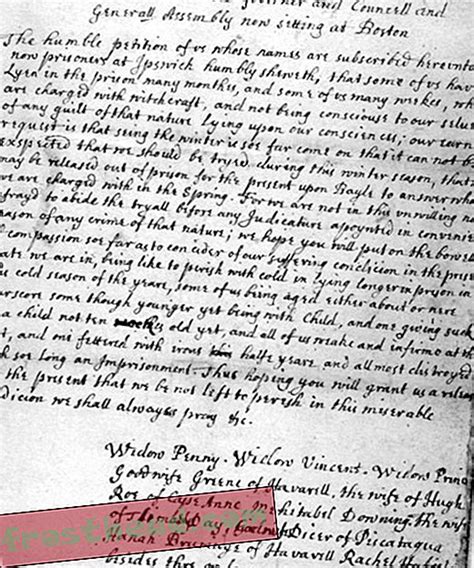 Governer and Councell and
Generall Assembly now sitting at Boston
The humble petition of us whose names are subscribed hereunto
now prisoners at Ipswich humbly sheweth, that some of us have
Lyen in the prison many monthes, and some of us many weekes, who
are charged with witchcraft, and not being conscious to our selves
of any guilt of that nature lying upon our consciences; our earn
request is that seing the winter is soe far come on that it can not be
exspected that we should be tryed during this winter season, that
may be released out of prison for the present upon Bayle to answer wh
we are charged with in the Spring. For we are not in this unwilling nor
afrayd to abide the tryall before any Judicature apoynted in convenie
eason of any crime of that nature; we hope you will put on the bowells
compassion soe far as to concider of our suffering condicion in the prese
tate we are in, being like to perish with cold in lying longer in pryson in
cold season of the yeare, some of us being aged either about or nere
urscore some though younger yet being with Child, and one giving suck
a child not ten weeks old yet, and all of us weake and infirme at
t, and one fettered with irons this halfe yeare and allmost distroyed
soe long an Imprisonment. Thus hoping you will grant us a releas
the present that we be not left to perish in this miserable
dicion we shall alwayes pray &c.
Widow Penny. Widow Vincent. Widow Prin
Goodwife Greene of Havarill, the wife of Hugh
Roe of Cape Anne, Mehitabel Downing. the wife
of Timothy Day, Goodwife Dicer of Piscataqua
Hanah Brumidge of Havarill Rachel
besides thre